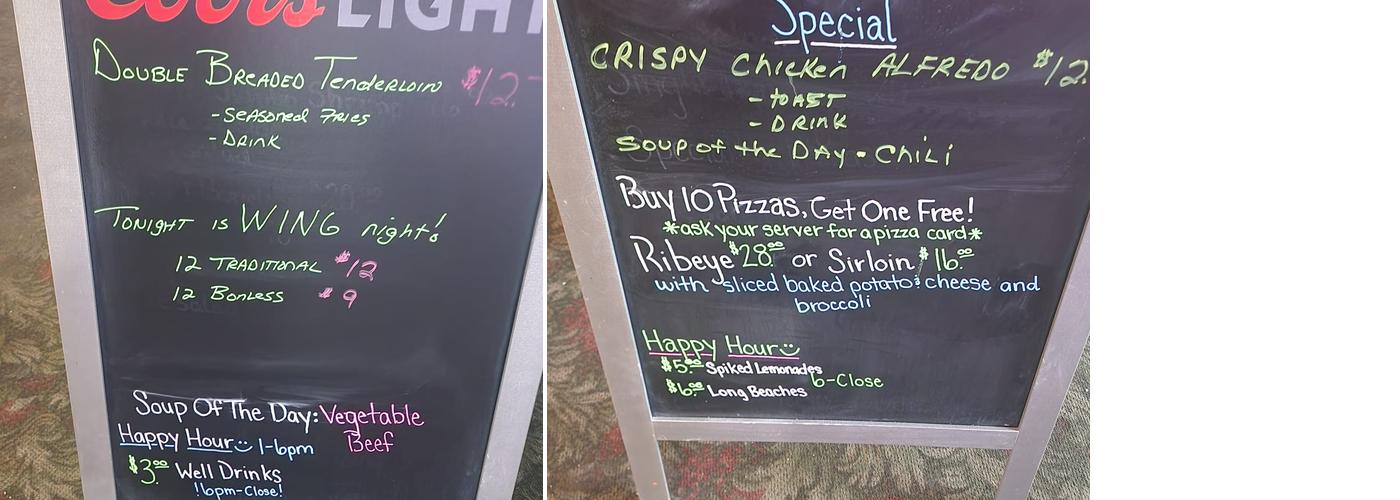 Coors LIGHT
DOUBLE BREADED TENDERLOIN $12.
- SEASONED FRIES
- DRINK
TONIGHT IS WING night!
12 TRADITIONAL $12
12 BONLESS $9
Soup Of The Day: Vegetable
Beef
Happy Hour 1-6pm
$3.00 Well Drinks
!6pm-Close!
Special
CRISPY Chicken ALFREDO $12.
- TOAST
- DRINK
SOUP of the DAY • CHILI
Buy 10 Pizzas, Get One Free!
*ask your server for a pizza card*
Ribeye $28.00 or Sirloin $16.00
with sliced baked potato & cheese and
broccoli
Happy Hour
$5.00 Spiked Lemonades
6-Close
$6.00 Long Beaches